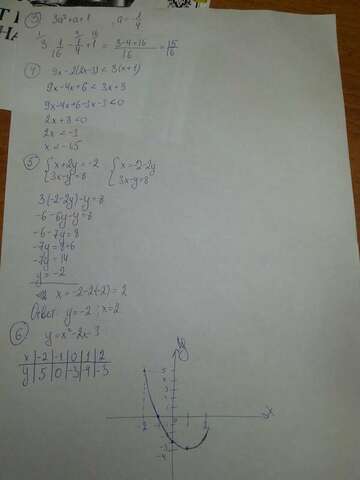 3) 3a²+a+1 a=-1/4
3·1/16-1/4+1 = (3-4+16)/16 = 15/16
4) 9x-2(2x-3)<3(x+1)
9x-4x+6<3x+3
9x-4x+6-3x-3<0
2x+3<0
2x<-3
x<-1,5
5) {x+2y=-2 {x=-2-2y
{3x-y=8 {3x-y=8
3(-2-2y)-y=8
-6-6y-y=8
-6-7y=8
-7y=8+6
-7y=14
y=-2
x=-2-2(-2)=2
Ответ: y=-2; x=2
6) y=x²-2x-3
x -2 -1 0 1 2
y 5 0 -3 -4 -3
y
5
x
-2
2
-3
-4